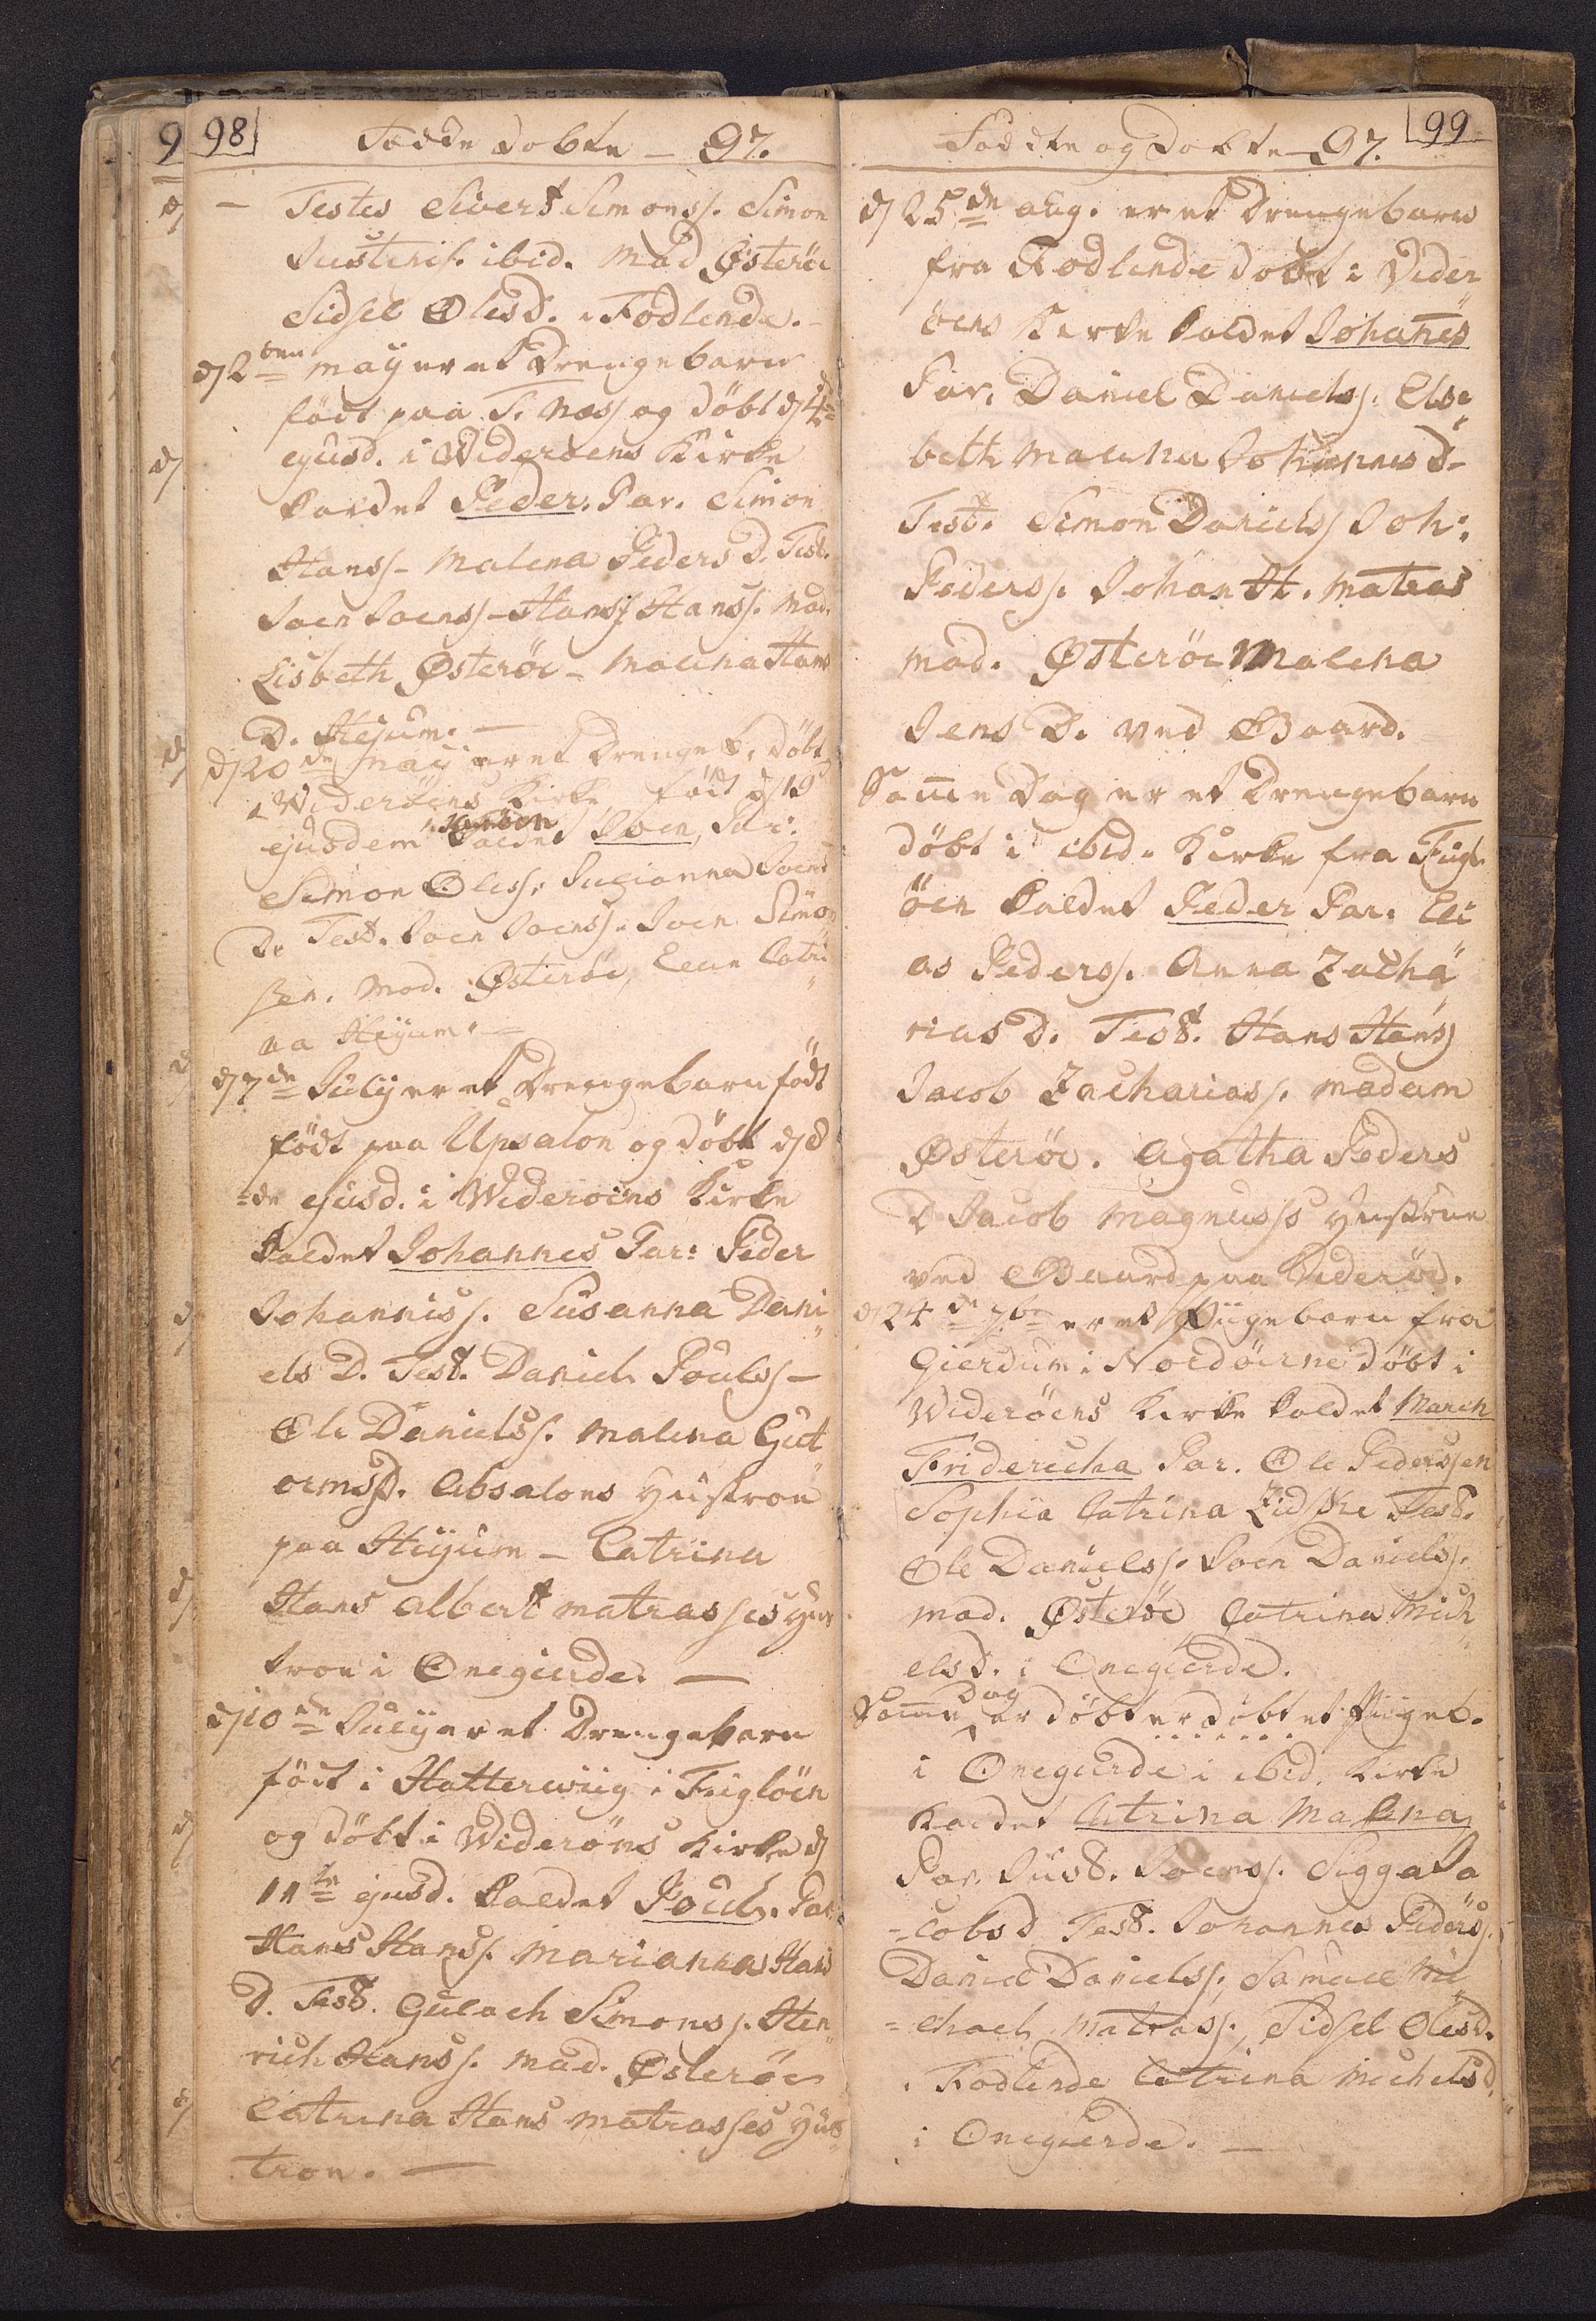 98
Fødde døbte — 97.
— Testes Sivert Simonss. Simon
Justinis. ibid. Mad Østeröe
Sidsel Olesd. i Fodlende. —
d/ 2den May er et Drengebarn
födt paa S. Næs og döbt d/ 4de
ejusd. i Wideröens Kirke
kaldet Peder. Par. Simon
Hanss- Malena Peders D. Test.
Joen Joenss- Hans Hanss. Mad.
Lisbeth Østeröe - Malena Hans
D. Hejum. —
d/ 20de May er et Drengeb. döbt
i Wideröens Kirke, födt d/ 19
ejusdem kaldet Joen, Par:
Simon Oless: Julianna Joens
D. Test. Joen Joenss. Joen Simon
sen. Mod. Østeröe, Catri
na Hejum. —
d/ 7de July er et Drengebarn födt
födt paa Upsalon og döbt d/ 8
=de ejusd. i Wideröens Kirke
kaldet Johannes Par: Peder
Johannis s. Susanna Dani
els D. Test. Daniel Pouls s —
Ole Daniels s. Malena Gut
ormsD. Absalons Hustroe
paa Hejum — Catrina
Hans Albert Matrasses Hus
troe i Onegierde. —
d/ 10de July er et Drengebarn
födt i Hatterwiig i Fuglöen
og döbt i Wideröns Kirke d/
11te ejusd. kaldet Poul. Par.
Hans Hanss. Marianna Hans
D. Test. Gulach Simons s. Hen
rich Hans s. Mad. Østeröe
Catrina Hans Matrasses Hus
troe. —
99
Födde og Döbte 97.
d/ 25de Aug. er et Drengebarn
fra Fodlende döbt i Vider
öens Kirke kaldet Johanes
Par. Daniel Daniels s. Else
beth Malena Johannes d-
Test. Simon Daniels s Joh:
Peders s. Johan H. Matras
Mad. Østeröe Malena
Jens D. ved Gaard.
Same Dag er et Drengebarn
döbt i ibid. Kirke fra Fugl
öen kaldet Peder Par. Eli
as Peders s. Anna Zacha
rias D. Test. Hans Hans s
Jacob Zacharias s. Madam
Østeröe. Agatha Peders
D Jacob Magnus s's Hustrue
ved Gaard paa Videröe.
d/ 24de 7br er et Piigebarn fra
Gierdum i Nordöerne döbt i
Wideröens Kirke kaldet Maren
Fridericha Par. Ole Pederssen
Sophia Catrina Lidske Test.
Ole Daniels s. Joen Daniels s.
Mad. Østeröe Catrina Mich
elsD. i Onegierde.
Same Dag er döbt er döbt et Piigeb.
i Onegierde i ibid. Kirke
kaldet Catrina Malena
Par. Just. Joens s. Sigga Ja
=cobsd Test. Johannes Peders s.
Daniel Daniels s. Samuel Mi
=chael Matras s. Sidsel Olesd.
i Fodlende Catrina Michelsd.
i Onegierde. —